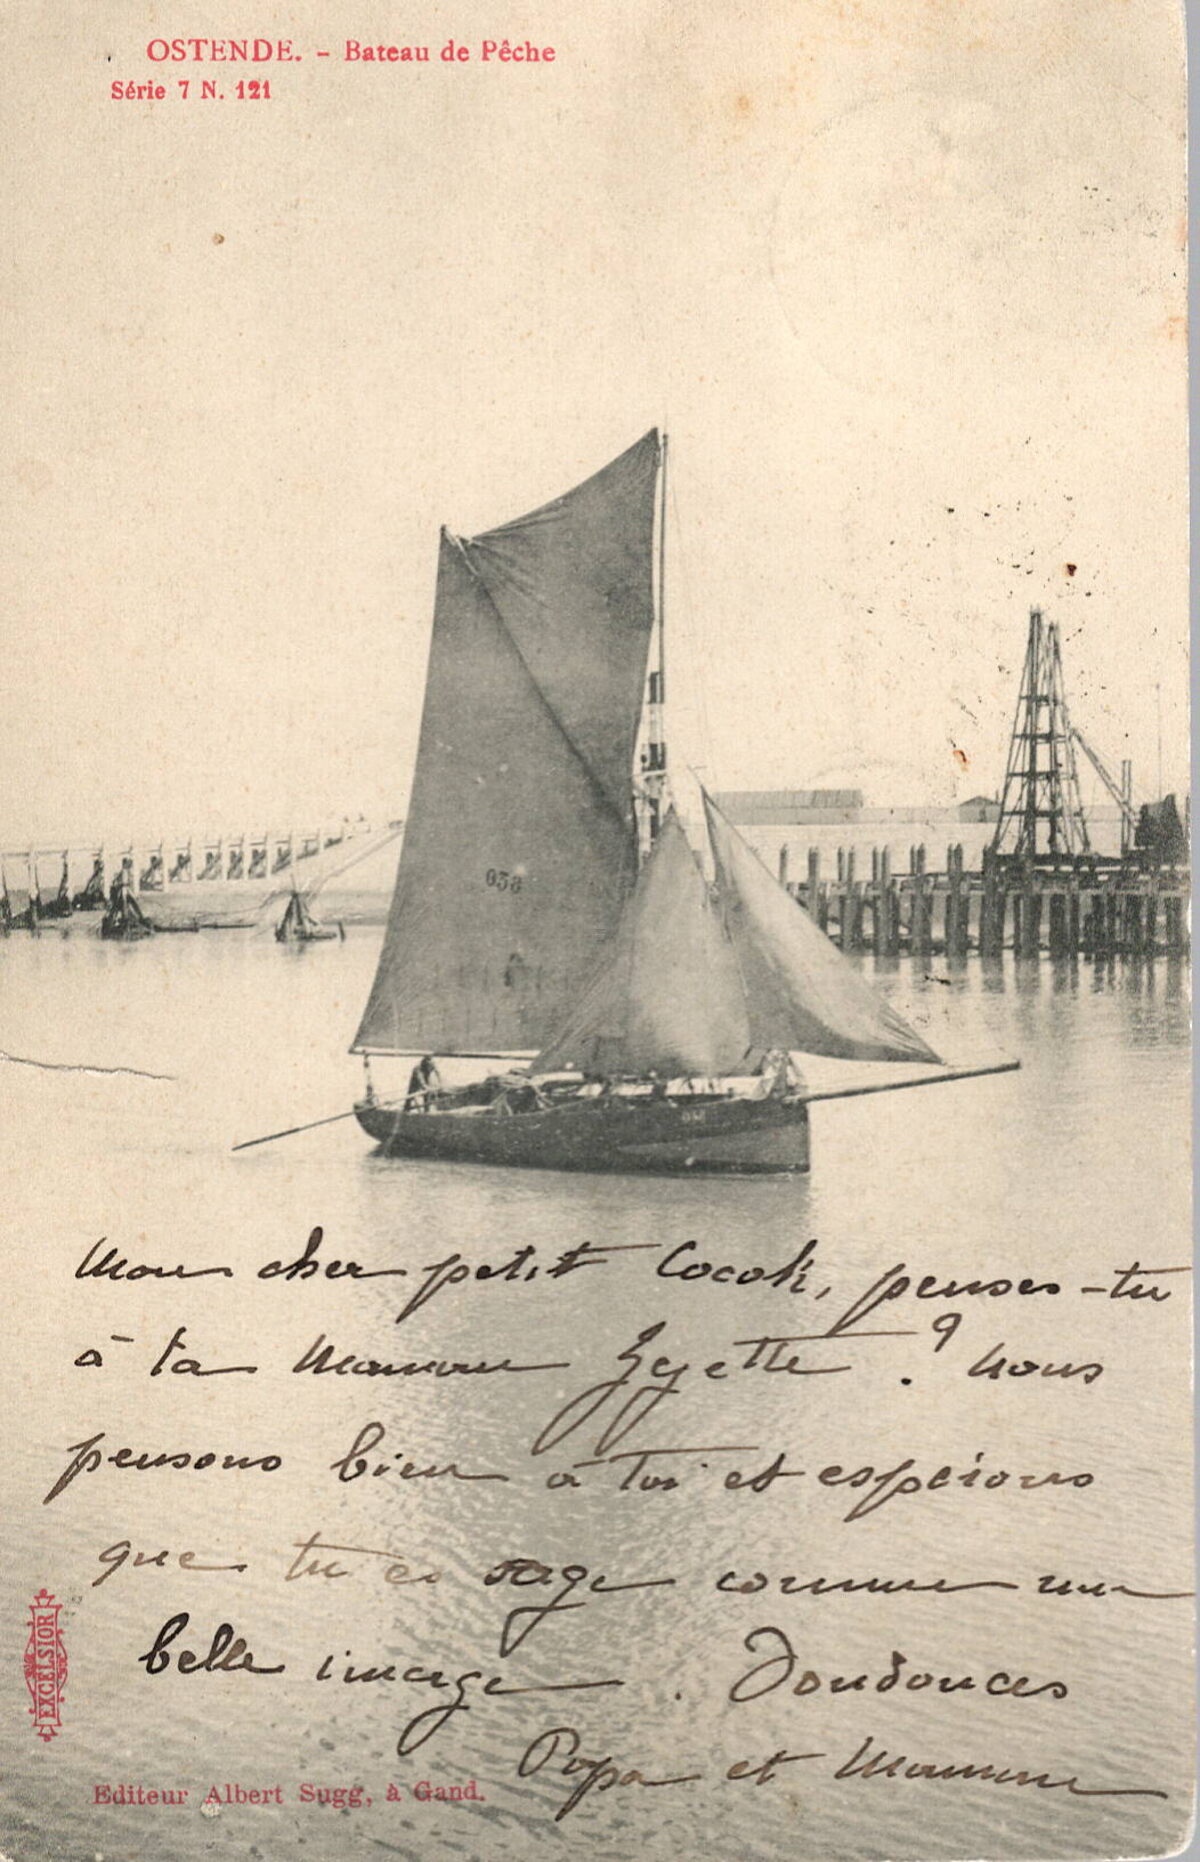 OSTENDE. - Bateau de Pêche
Série 7 N. 121
038
Mon cher petit Cocok, penses-tu
à ta Maman Zezette ? Nous
pensons bien à toi et espérons
que tu es sage comme une
belle image. Doudouces
Papa et Maman
EXCELSIOR
Editeur Albert Sugg, à Gand.